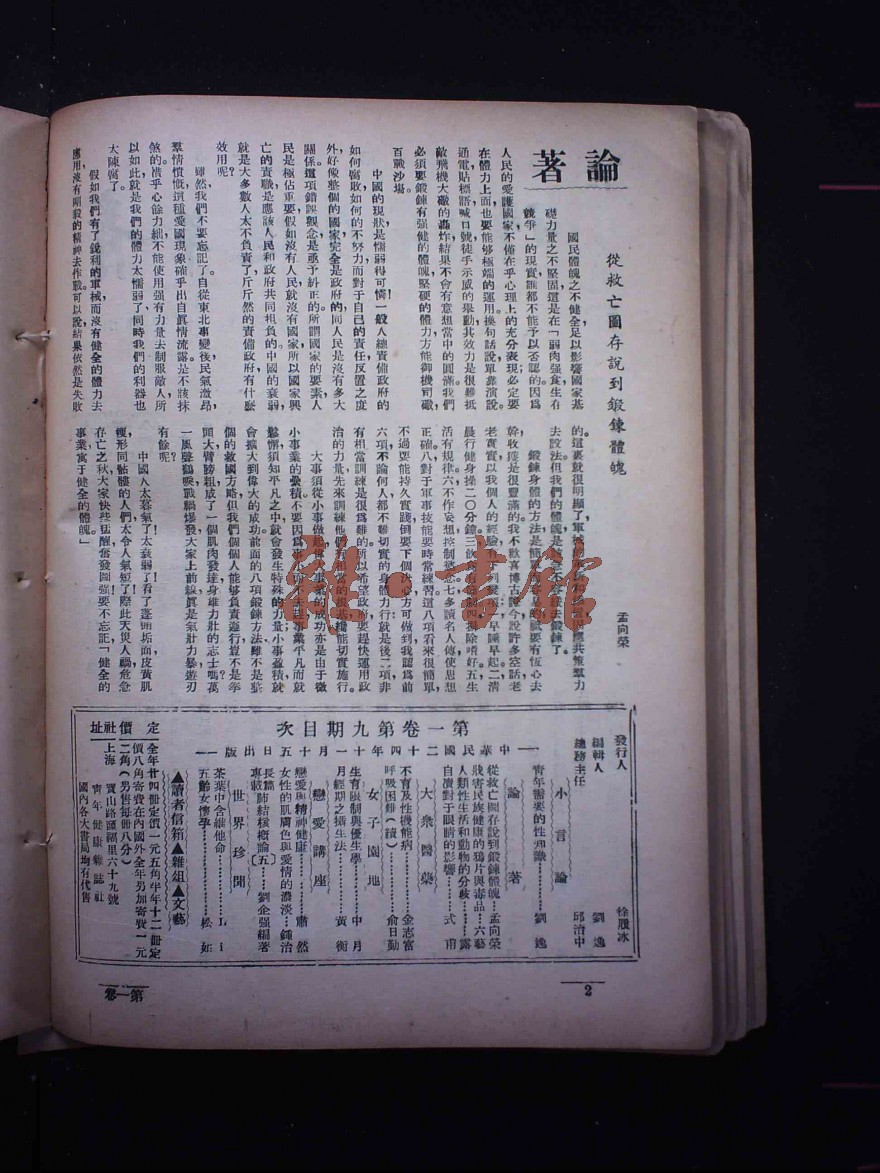 論著
從救亡圖存說到鍛鍊體魄
孟向榮
國民體魄之不健全足以影響國家基
礎力量之不堅固這是在「弱肉强食生存
競爭」的現實誰都不能予以否認的。因爲
人民的愛護國家不僅在乎心理上的充分表現；必定要
在體力上面也要能够極端的運用。換句話說單靠演說。
通電貼標語喊口號徒乎示威的舉動其效力是很難抵
敵飛機大礮的轟炸結果不會有意想當中的圓滿。我們
必須要鍛鍊有强健的體魄堅硬的體力方能御機司礮，
百戰沙場。
中國的現狀是懦弱得可憐！一般人總責備政府的
如何腐敗如何的不努力而對于自己的責任反置之度
外好像整個的國家完全是政府的同人民是沒有多大
關係。這項錯誤觀念是亟予糾正的所謂國家的要素人
民是極佔重要假如沒有人民，就沒有國家，所以國家興
亡的責職是應該人民和政府共同担負的。中國的衰弱
就是大多數人太不負責了斤斤然的責備政府，有什麼
效用呢？
雖然我們不要忘記了。自從東北事變後民氣激昂，
羣情憤慨這種愛國現象確乎出自眞情流露是不該抹
煞的。惜乎心餘力絀不能使用强有力量去制服敵人所
以如此就是我們的體力太懦弱了同時我們的利器也
太陳腐了。
假如我們有了銳利的軍械而沒有健全的體力去
應用沒有剛毅的精神去作戰。可以說結果依然是失敗
的。這裏就很明顯了，軍械
共策羣力
去設法但我們的體魄是
去鍛鍊了。
鍛鍊身體的方法是簡單
要有恆心去
幹收獲是很豐滿的。我不歡喜博古證今說許多空話老
老實實以我個人的經驗
列幾項一早睡早起二清
晨行健身操二〇分鐘三飲食
四掃除嗜好五生
活有規律六不作妄想控制慾念七多讀名人傳使思想
正確。八對于軍事技能要時常練習這八項看來很簡單，
不過要能持久實踐倒要下個决心方可做到我認爲前
六項不論何人都不難切實的身體力行就是後二項非
有相當訓練是很爲難的。所以希望政府要趕快運用政
治的力量先來訓練他們有相當的根基纔能切實施行。
大事須從小事做起偉大事業的成功亦是由于微
小事業的叠積。不要因爲事小而不去趕事業平凡而就
鬆懈須知平凡之中就會發生特殊的力量；小事盈積就
會擴大到偉大的成功前面的八項鍛鍊方法雖不是整
個的救國方略但我們個個人能够負責遵行豈不是拳
頭大臂膀粗成了一個肌肉發達身雄力壯的志士嗎？萬
一風聲鶴唳戰禍爆發大家上前線眞是氣壯力暴遊刃
有餘呢？
中國人太暮氣了！太衰弱了！看了蓬頭垢面皮黃肌
瘦形同骷髏的人們太令人氣短了！際此天災人禍危急
存亡之秋大家快些猛醒奮發圖强要不忘記「健全的
事業寓于健全的體魄。」
發行人 徐殿冰
編輯人 劉逸
總務主任 邱治中
第一卷第九期目次
—中華民國二十四年十一月十五日出版—
小言論
青年需要的性知識………劉逸
論著
從救亡圖存說到鍛鍊體魄…孟向榮
戕害民族健康的鴉片與毒品…六藝
人類性生活和動物的分歧……露
自瀆對于眼睛的影響……式甫
大衆醫藥
不育及性機能病………金志富
呼吸困難（續）………俞日勤
女子園地
生育限制與優生學……中月
月經期之攝生法………黃衡
戀愛講座
戀愛與精神健康………肅然
女性的肌膚色與愛情的濃淡…鍾治
長篇
專載
肺結核概論〔五〕……劉企强編著
世界珍聞
茶葉中含維他命………L i
五齡女懷孕………松如
▲讀者信箱▲雜俎▲文藝
定價
全年廿四册定價一元五角半年十二册定
價八角寄費在內國外全年另加寄費一元
二角（另售每册八分）
社址
上海寶山路匯福里六十九號
青年健康雜誌社
國內各大書局均有代售
雜書館
2
第一卷